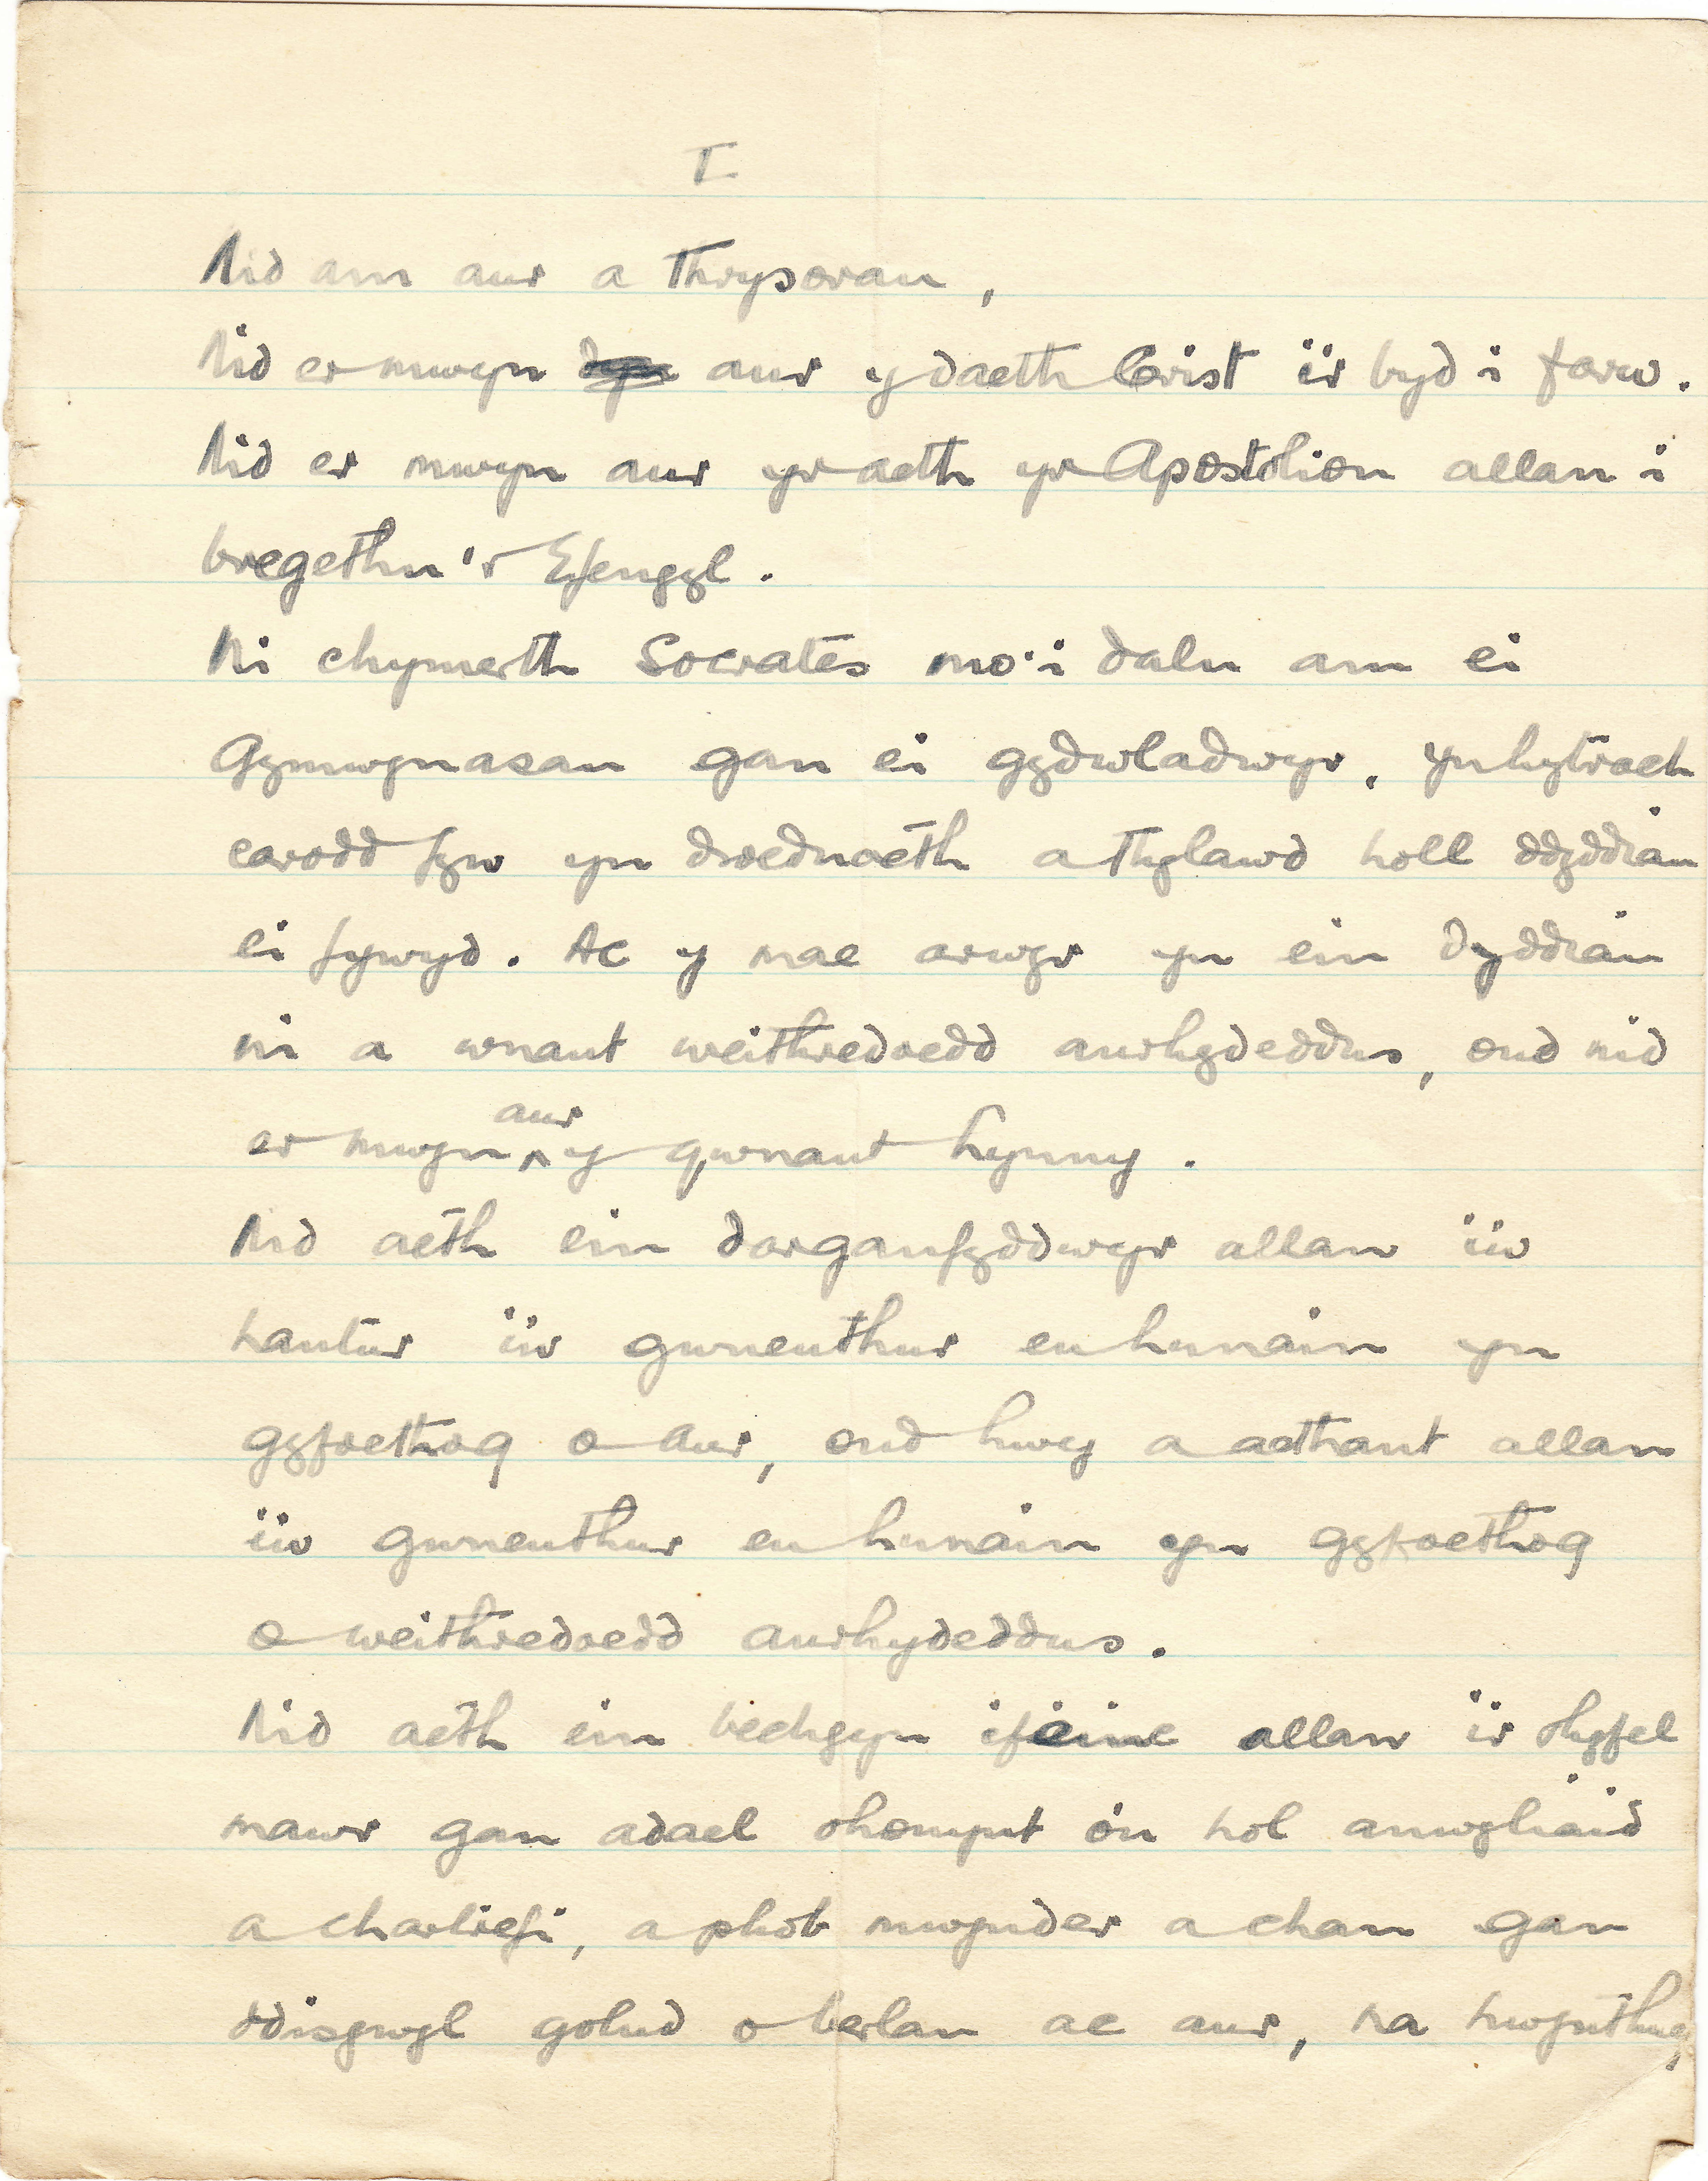 I
Nid am aur a Thrysorau,
Nid er mwyn aur y daeth Crist i'r byd i farw.
Nid er mwyn aur yr aeth yr Apostolion allan i
bregethu'r Efengyl.
Ni chymerth Socrates mo'i dalu am ei
Gymwynasau gan ei gydwladwyr. Ynhytrach
carodd fyw yn droednoeth a thylawd holl ddyddiau
ei fywyd. Ac y mae arwyr yn ein dyddiau
ni a wnant weithredoedd aurhydeddus, ond nid
er mwyn aur y gwnant hynny.
Nid aeth ein darganfyddwyr allan i'w
hantur i'w gwneuthur eu hunain yn
gyfoethog o aur, ond hwy a aethant allan
i'w gwneuthur eu hunain yn gyfoethog
o weithredoedd aurhydeddus.
Nid aeth ein bechgyn ifeinc allan i'r Rhyfel
mawr gan adael ohonynt o'u hol anwyliaid
a charliefi, a phob mwynder a chan gan
ddisgwyl golud o berlau ac aur, na hwynthwy,